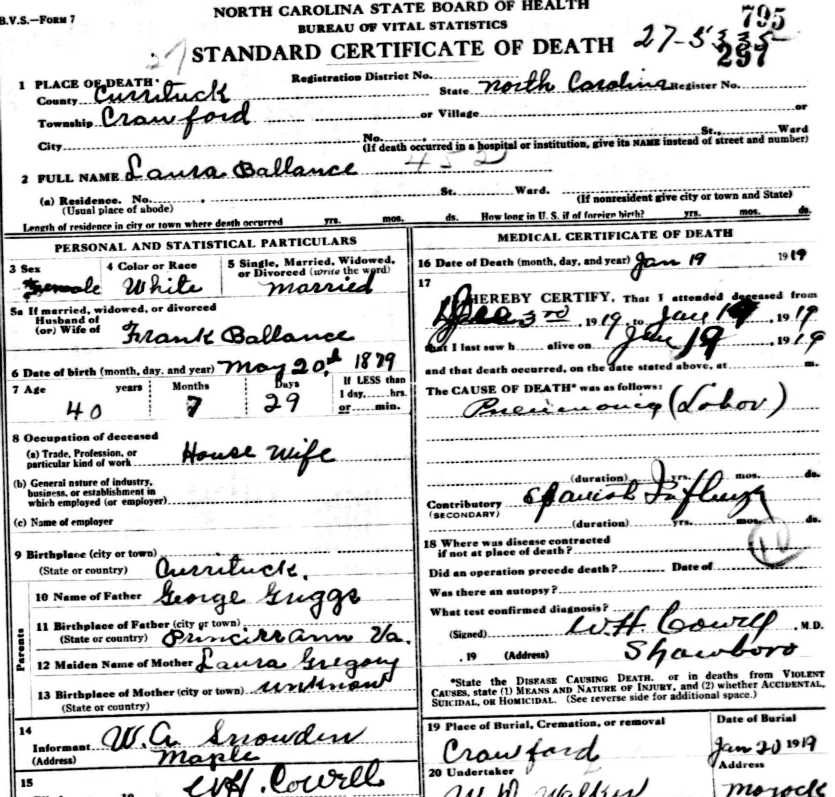 NORTH CAROLINA STATE BOARD OF HEALTH
B.V.S.—FORM 7
BUREAU OF VITAL STATISTICS
795
27
STANDARD CERTIFICATE OF DEATH
297
1 PLACE OF DEATH
Registration District No.
County Currituck
State North Carolina
Register No.
Township Crawford
or Village
or
City
No.
St., Ward
(If death occurred in a hospital or institution, give its NAME instead of street and number)
2 FULL NAME Laura Ballance
(a) Residence. No. St. Ward.
(Usual place of abode)
(If nonresident give city or town and State)
Length of residence in city or town where death occurred yrs. mos. ds. How long in U. S. if of foreign birth? yrs. mos. ds.
PERSONAL AND STATISTICAL PARTICULARS
3 Sex
Female
4 Color or Race
White
5 Single, Married, Widowed,
or Divorced (write the word)
Married
5a If married, widowed, or divorced
Husband of
(or) Wife of Frank Ballance
6 Date of birth (month, day, and year) May 20 1879
7 Age years Months Days
40 7 29
If LESS than
1 day, hrs.
or min.
8 Occupation of deceased
(a) Trade, Profession, or
particular kind of work House Wife
(b) General nature of industry,
business, or establishment in
which employed (or employer)
(c) Name of employer
9 Birthplace (city or town)
(State or country) Currituck.
Parents
10 Name of Father George Griggs
11 Birthplace of Father (city or town)
(State or country) Princess Ann Va.
12 Maiden Name of Mother Laura Gregory
13 Birthplace of Mother (city or town) unknow
(State or country)
14
Informant W. A. Snowden
(Address) Maple
15
W.H. Cowell
MEDICAL CERTIFICATE OF DEATH
16 Date of Death (month, day, and year) Jan 19 1919
17
I HEREBY CERTIFY, That I attended deceased from
3rd, 1919 to Jan 19, 1919
that I last saw h alive on Jan 19, 1919
and that death occurred, on the date stated above, at m.
The CAUSE OF DEATH* was as follows:
Pneumonia (Lobar)
(duration) yrs. mos. ds.
Contributory Spanish Influenza
(SECONDARY)
(duration) yrs. mos. ds.
18 Where was disease contracted
if not at place of death?
Did an operation precede death? Date of
Was there an autopsy?
What test confirmed diagnosis?
(Signed) W.H. Cowell, M.D.
, 19 (Address) Shawboro
*State the DISEASE CAUSING DEATH, or in deaths from VIOLENT
CAUSES, state (1) MEANS AND NATURE OF INJURY, and (2) whether ACCIDENTAL,
SUICIDAL, OR HOMICIDAL. (See reverse side for additional space.)
19 Place of Burial, Cremation, or removal
Crawford
Date of Burial
Jan 20 1919
20 Undertaker
Address
Walker